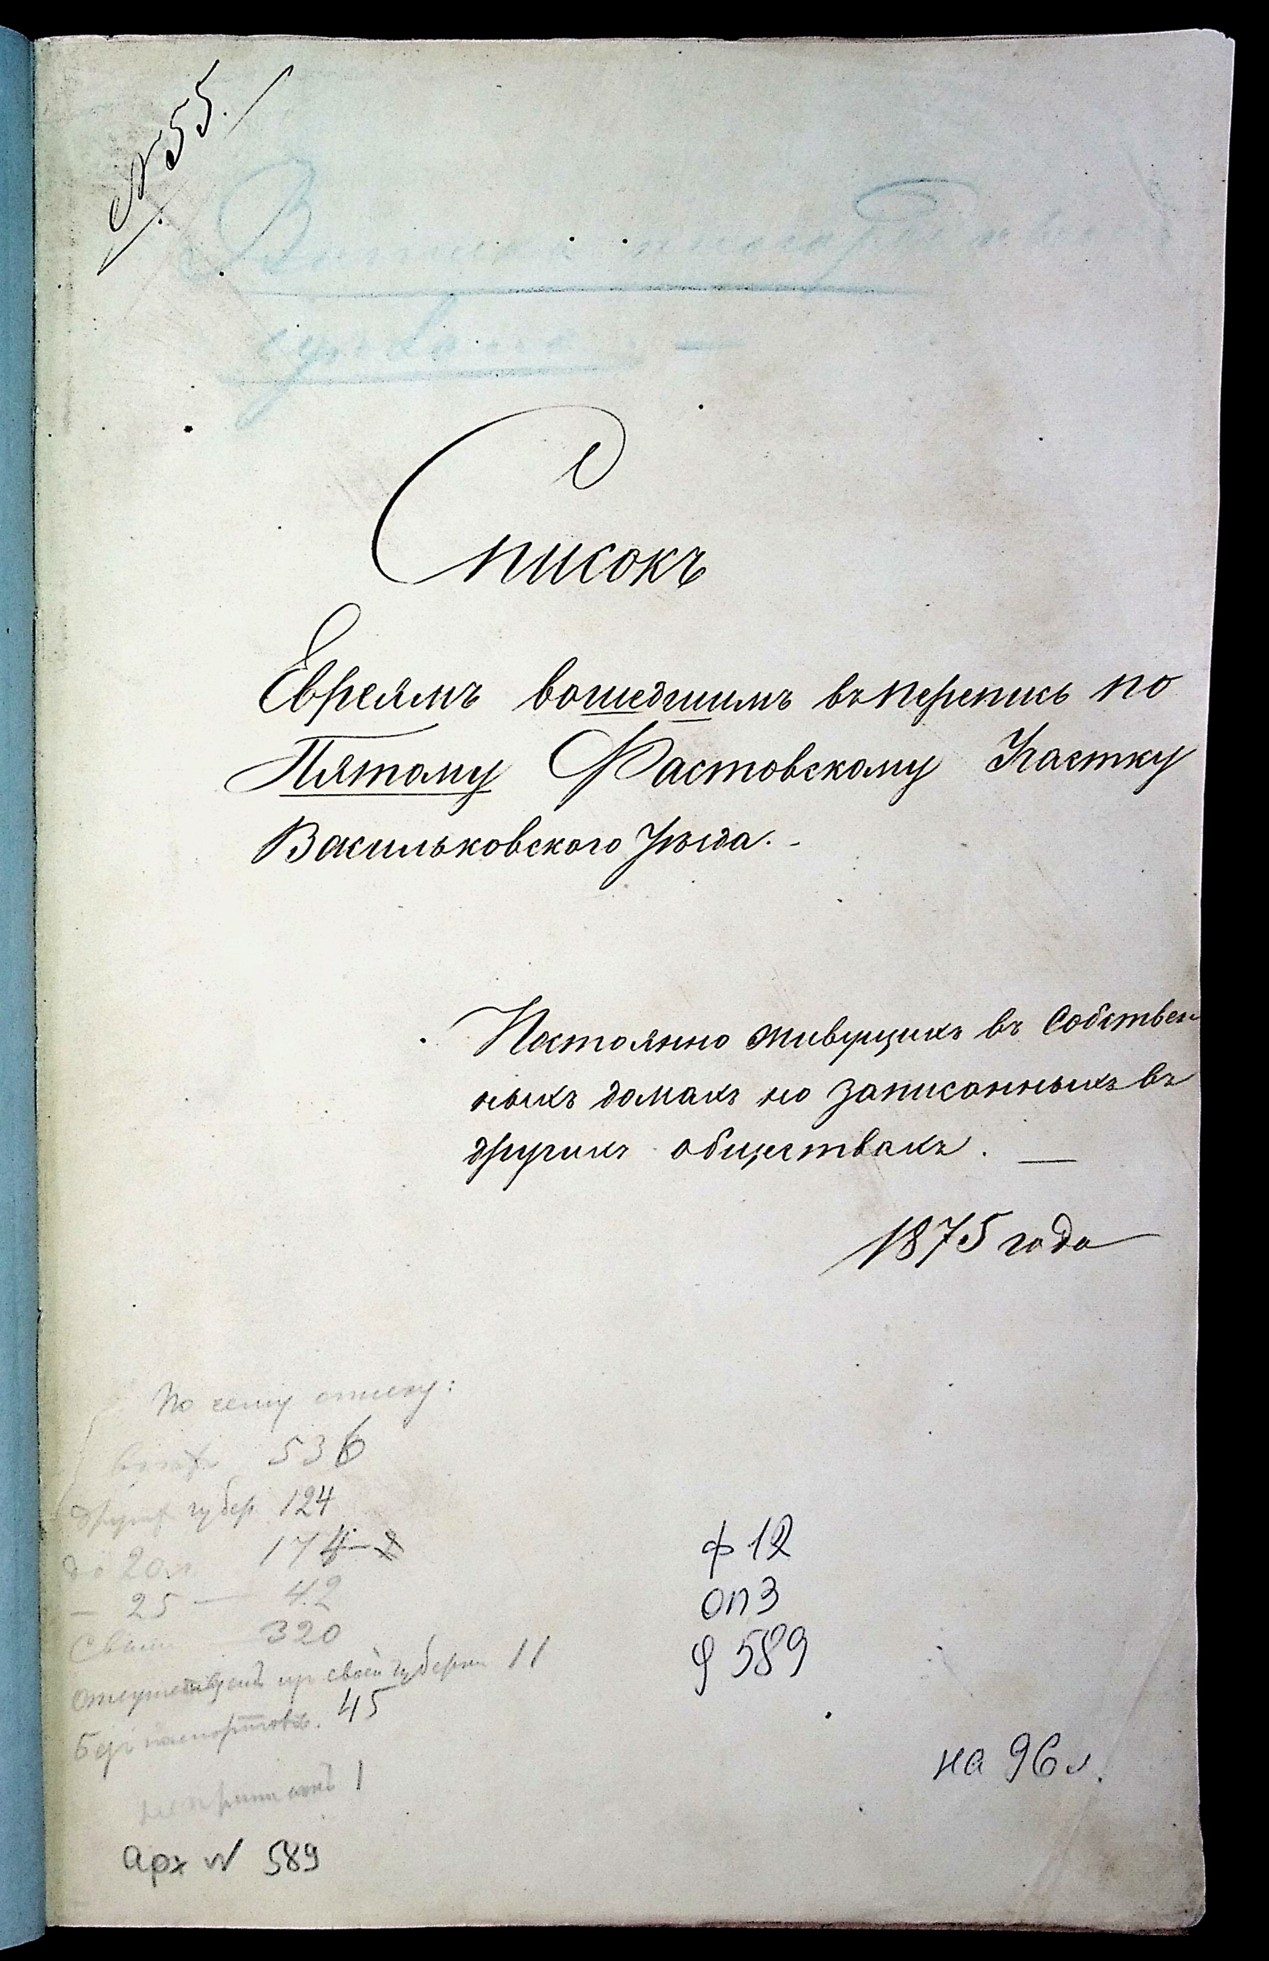 № 55.
Списокъ
Евреямъ вошедшимъ въ перепись по
Пятому Фастовскому Участку
Васильковского Уѣзда. -
Постоянно живущихъ въ Собствен
ныхъ домахъ но записанныхъ въ
другихъ обществахъ. —
1875 года
По сему списку:
536
другихъ губер. 124
до 20 л. 174
— 25 — 42
320
своей губерніи 11
Безъ паспортовъ. 45
1
ф 12
оп 3
д 589
на 96 л.
арх № 589